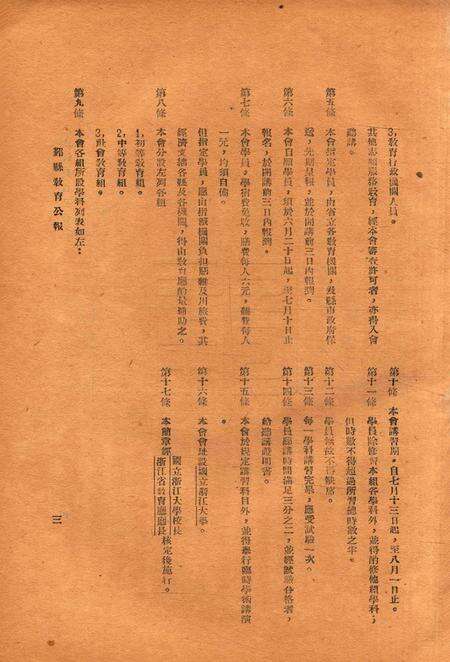 3,教育行政機關人員。
其他志願服務教育,經本會審查許可者,亦得入會
聽講。
第五條 本會指定學員,由省立各教育機關,及縣市政府保
送,先期呈報,並於開講前三日內報到。
第六條 本會自願學員,須於六月二十日起,至七月十日止
報名,於開講前三日內報到。
第七條 本會學員,學宿費免收,膳費每人六元,雜費每人
一元,均須自備。
但指定學員,應由指派機關負担膳雜及川旅費,其
經濟支絀各縣及各機關,得由教育廳酌量補助之。
第八條 本會分設左列各組
1,初等教育組。
2,中等教育組。
3,社會教育組。
第九條 本會各組所設學科列表如左:
鄞縣教育公報
第十條 本會講習期,自七月十三日起,至八月一日止。
第十一條 學員除修習本組各學科外,並得酌修他組學科;
但時數不得超過所習總時數之半。
第十二條 學員無故不得缺席。
第十三條 每一學科講習完畢,應受試驗一次。
第十四條 學員聽講時間滿足三分之二,並經試驗合格者,
給聽講證明書。
第十五條 本會於規定講習科目外,並得舉行臨時學術講演
。
第十六條 本會會址設國立浙江大學。
第十七條 本簡章經國立浙江大學校長
浙江省教育廳廳長核定後施行。
三